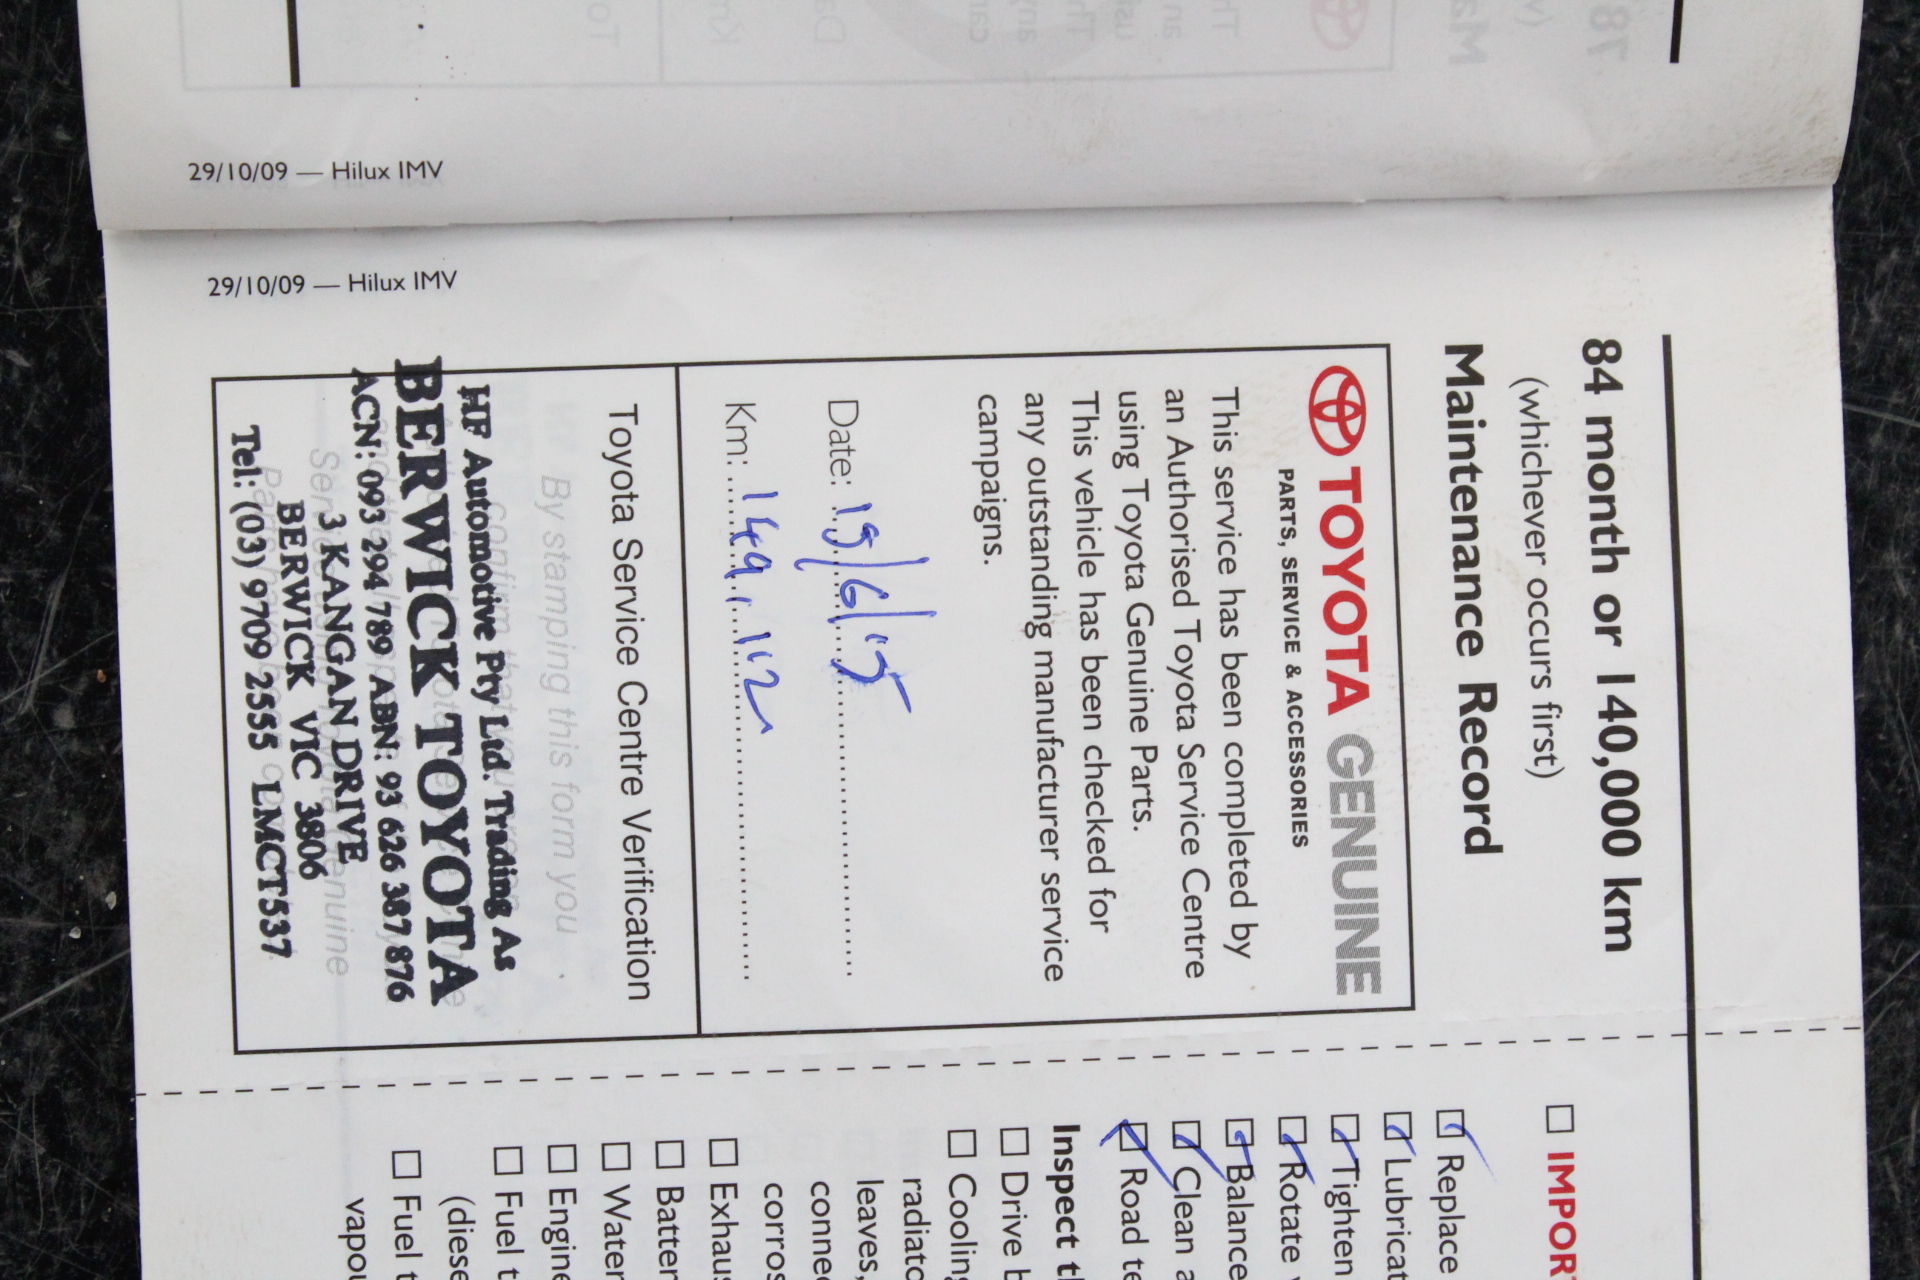 29/10/09 — Hilux IMV
29/10/09 — Hilux IMV
84 month or 140,000 km
(whichever occurs first)
Maintenance Record
TOYOTA GENUINE
PARTS, SERVICE & ACCESSORIES
This service has been completed by
an Authorised Toyota Service Centre
using Toyota Genuine Parts.
This vehicle has been checked for
any outstanding manufacturer service
campaigns.
Date: 19/6/15
Km: 149,112
Toyota Service Centre Verification
By stamping this form you
HF Automotive Pty Ltd. Trading As
BERWICK TOYOTA
ACN: 093 294 789 ABN: 93 626 387 876
3 KANGAN DRIVE
BERWICK VIC 3806
Tel: (03) 9709 2555 LMCT537
IMPOR
Replace
Lubricat
Tighten
Rotate
Balance
Clean a
Road te
Inspect t
Drive b
Cooling
radiato
leaves,
connec
corros
Exhaus
Batter
Water
Engine
Fuel t
(diese
Fuel t
vapou